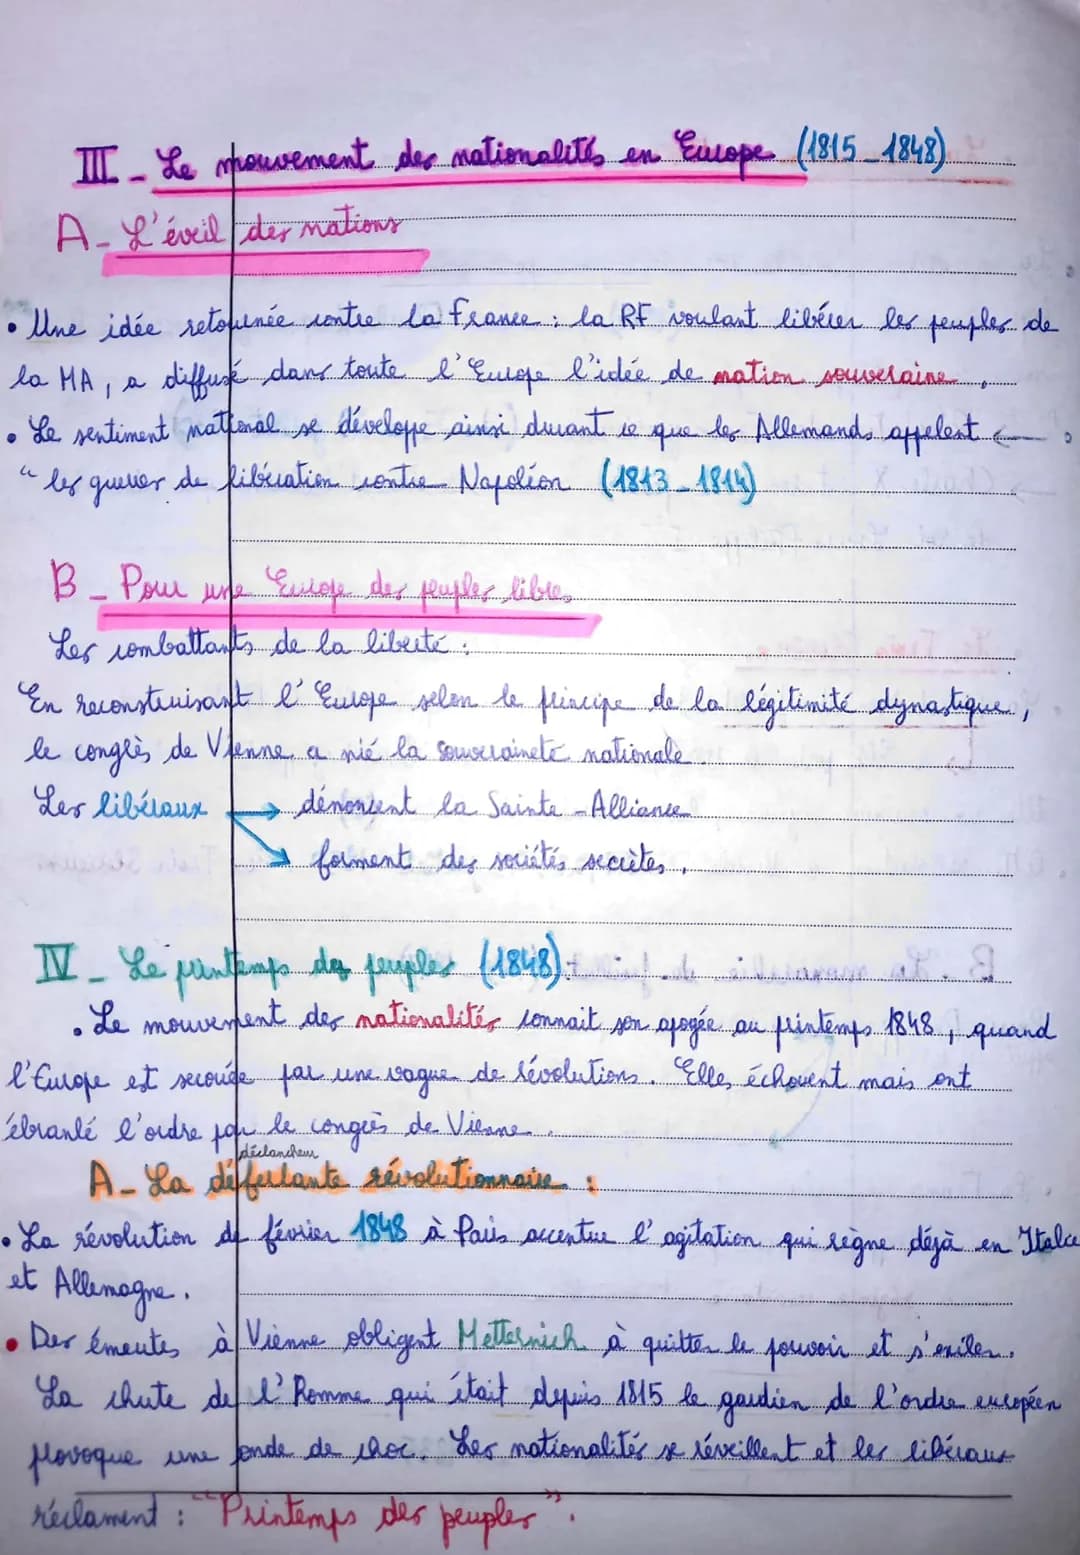 III - Le mouvement des nationalités en Europe (1815 - 1848)
A - L'éveil des nations
• Une idée retournée contre la France : la RF voulant libérer les peuples de
la MA, a diffusé dans toute l'Europe l'idée de nation souveraine.
• Le sentiment national se développe ainsi durant ce que les Allemands appelent
" les guerres de libération contre Napoléon (1813 - 1814)
B - Pour une Europe des peuples libres
Les combattants de la liberté :
En reconstruisant l'Europe selon le principe de la légitimité dynastique,
le congrès de Vienne a nié la souveraineté nationale.
Les libéraux → dénoncent la Sainte - Alliance
↘ forment des sociétés secrètes.
IV - Le printemps des peuples (1848) :
• Le mouvement des nationalités connait son apogée au printemps 1848, quand
l'Europe est secouée par une vague de révolutions. Elles échouent mais ont
ébranlé l'ordre par le congrès de Vienne.
déclancheur
A - La déferlante révolutionnaire :
• La révolution de février 1848 à Paris accentue l'agitation qui règne déjà en Italie
et Allemagne.
• Des émeutes à Vienne obligent Metternich à quitter le pouvoir et s'exiler.
La chute de l'Homme qui était depuis 1815 le gardien de l'ordre européen
provoque une onde de choc. Les nationalités se réveillent et les libéraux
réclament : "Printemps des peuples".